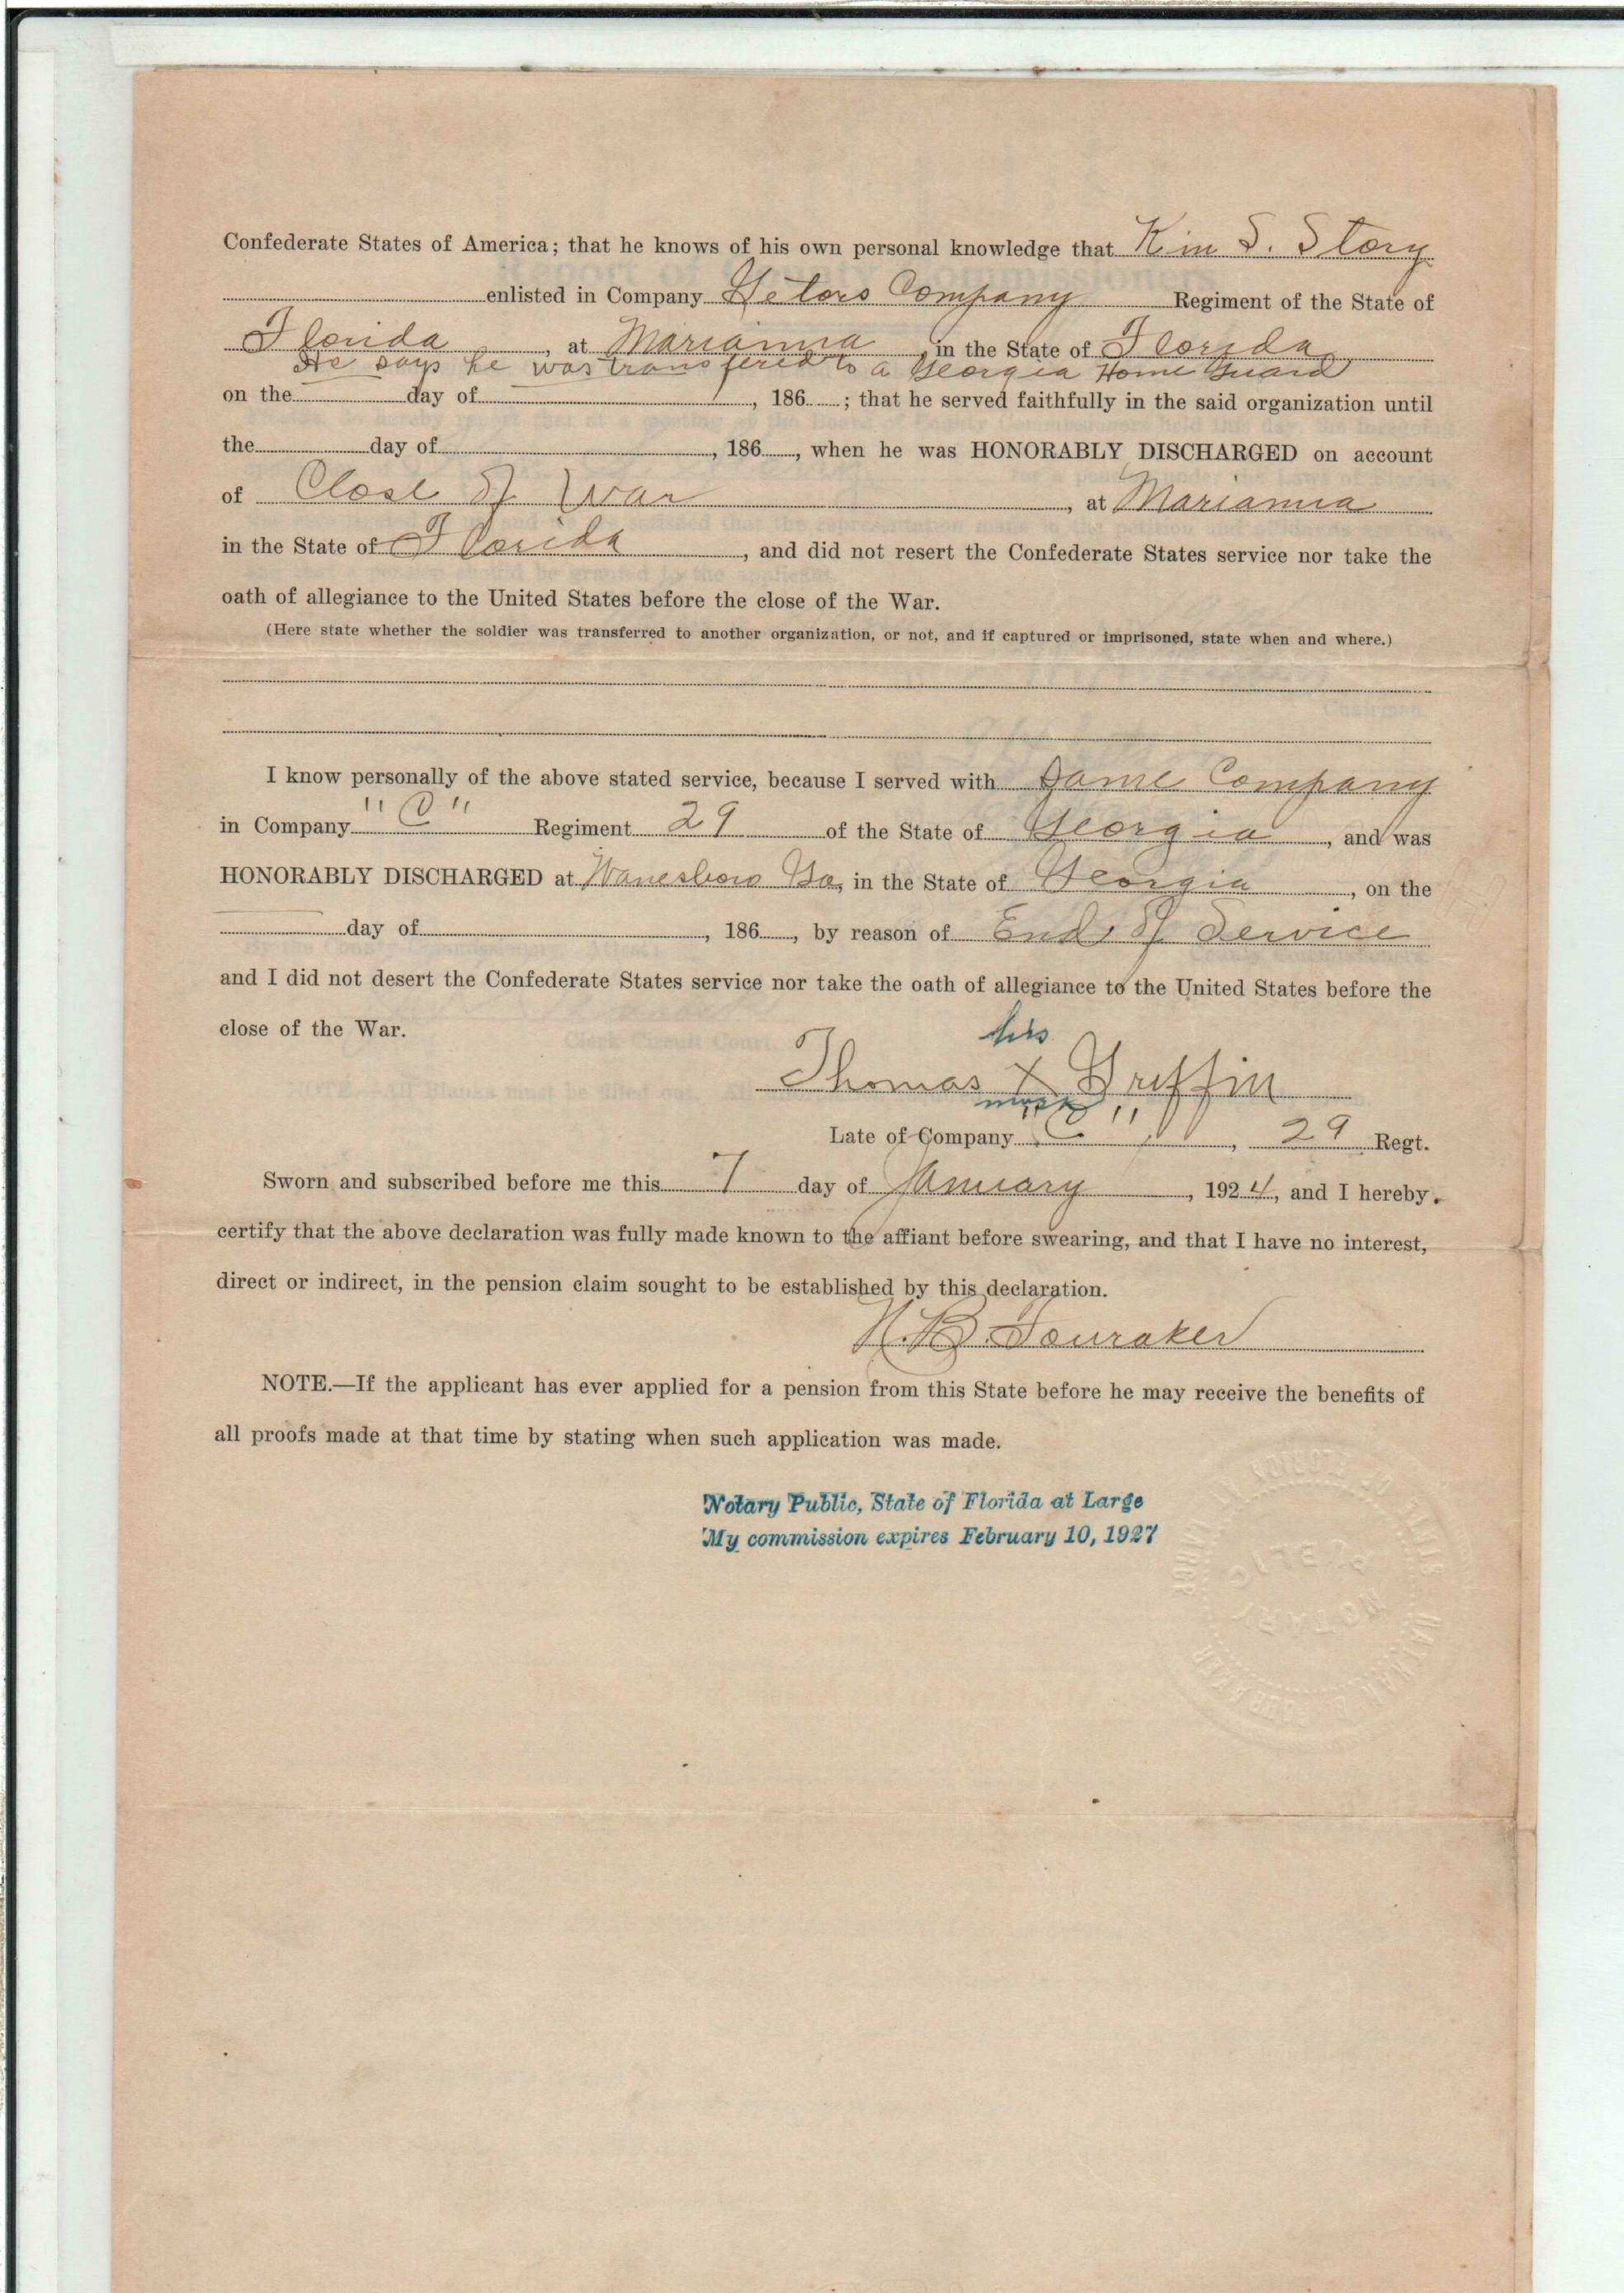 Confederate States of America; that he knows of his own personal knowledge that Kin S. Story
enlisted in Company Company Regiment of the State of
Florida, at Marianna, in the State of Florida
He says he was transfered to a Georgia Home Guard
on the day of , 186 ; that he served faithfully in the said organization until
the day of , 186 , when he was HONORABLY DISCHARGED on account
of Close of War , at Marianna
in the State of Florida , and did not resert the Confederate States service nor take the
oath of allegiance to the United States before the close of the War.
(Here state whether the soldier was transferred to another organization, or not, and if captured or imprisoned, state when and where.)
I know personally of the above stated service, because I served with Same Company
in Company "C" Regiment 29 of the State of Georgia , and was
HONORABLY DISCHARGED at Wanesboro Ga, in the State of Georgia , on the
day of , 186 , by reason of End of Service
and I did not desert the Confederate States service nor take the oath of allegiance to the United States before the
close of the War.
his
Thomas X Griffin
mark
Late of Company "C" , 29 Regt.
Sworn and subscribed before me this 7 day of January , 1924, and I hereby
certify that the above declaration was fully made known to the affiant before swearing, and that I have no interest,
direct or indirect, in the pension claim sought to be established by this declaration.
N. B. Fouraker
NOTE.—If the applicant has ever applied for a pension from this State before he may receive the benefits of
all proofs made at that time by stating when such application was made.
Notary Public, State of Florida at Large
My commission expires February 10, 1927
NOTARY PUBLIC